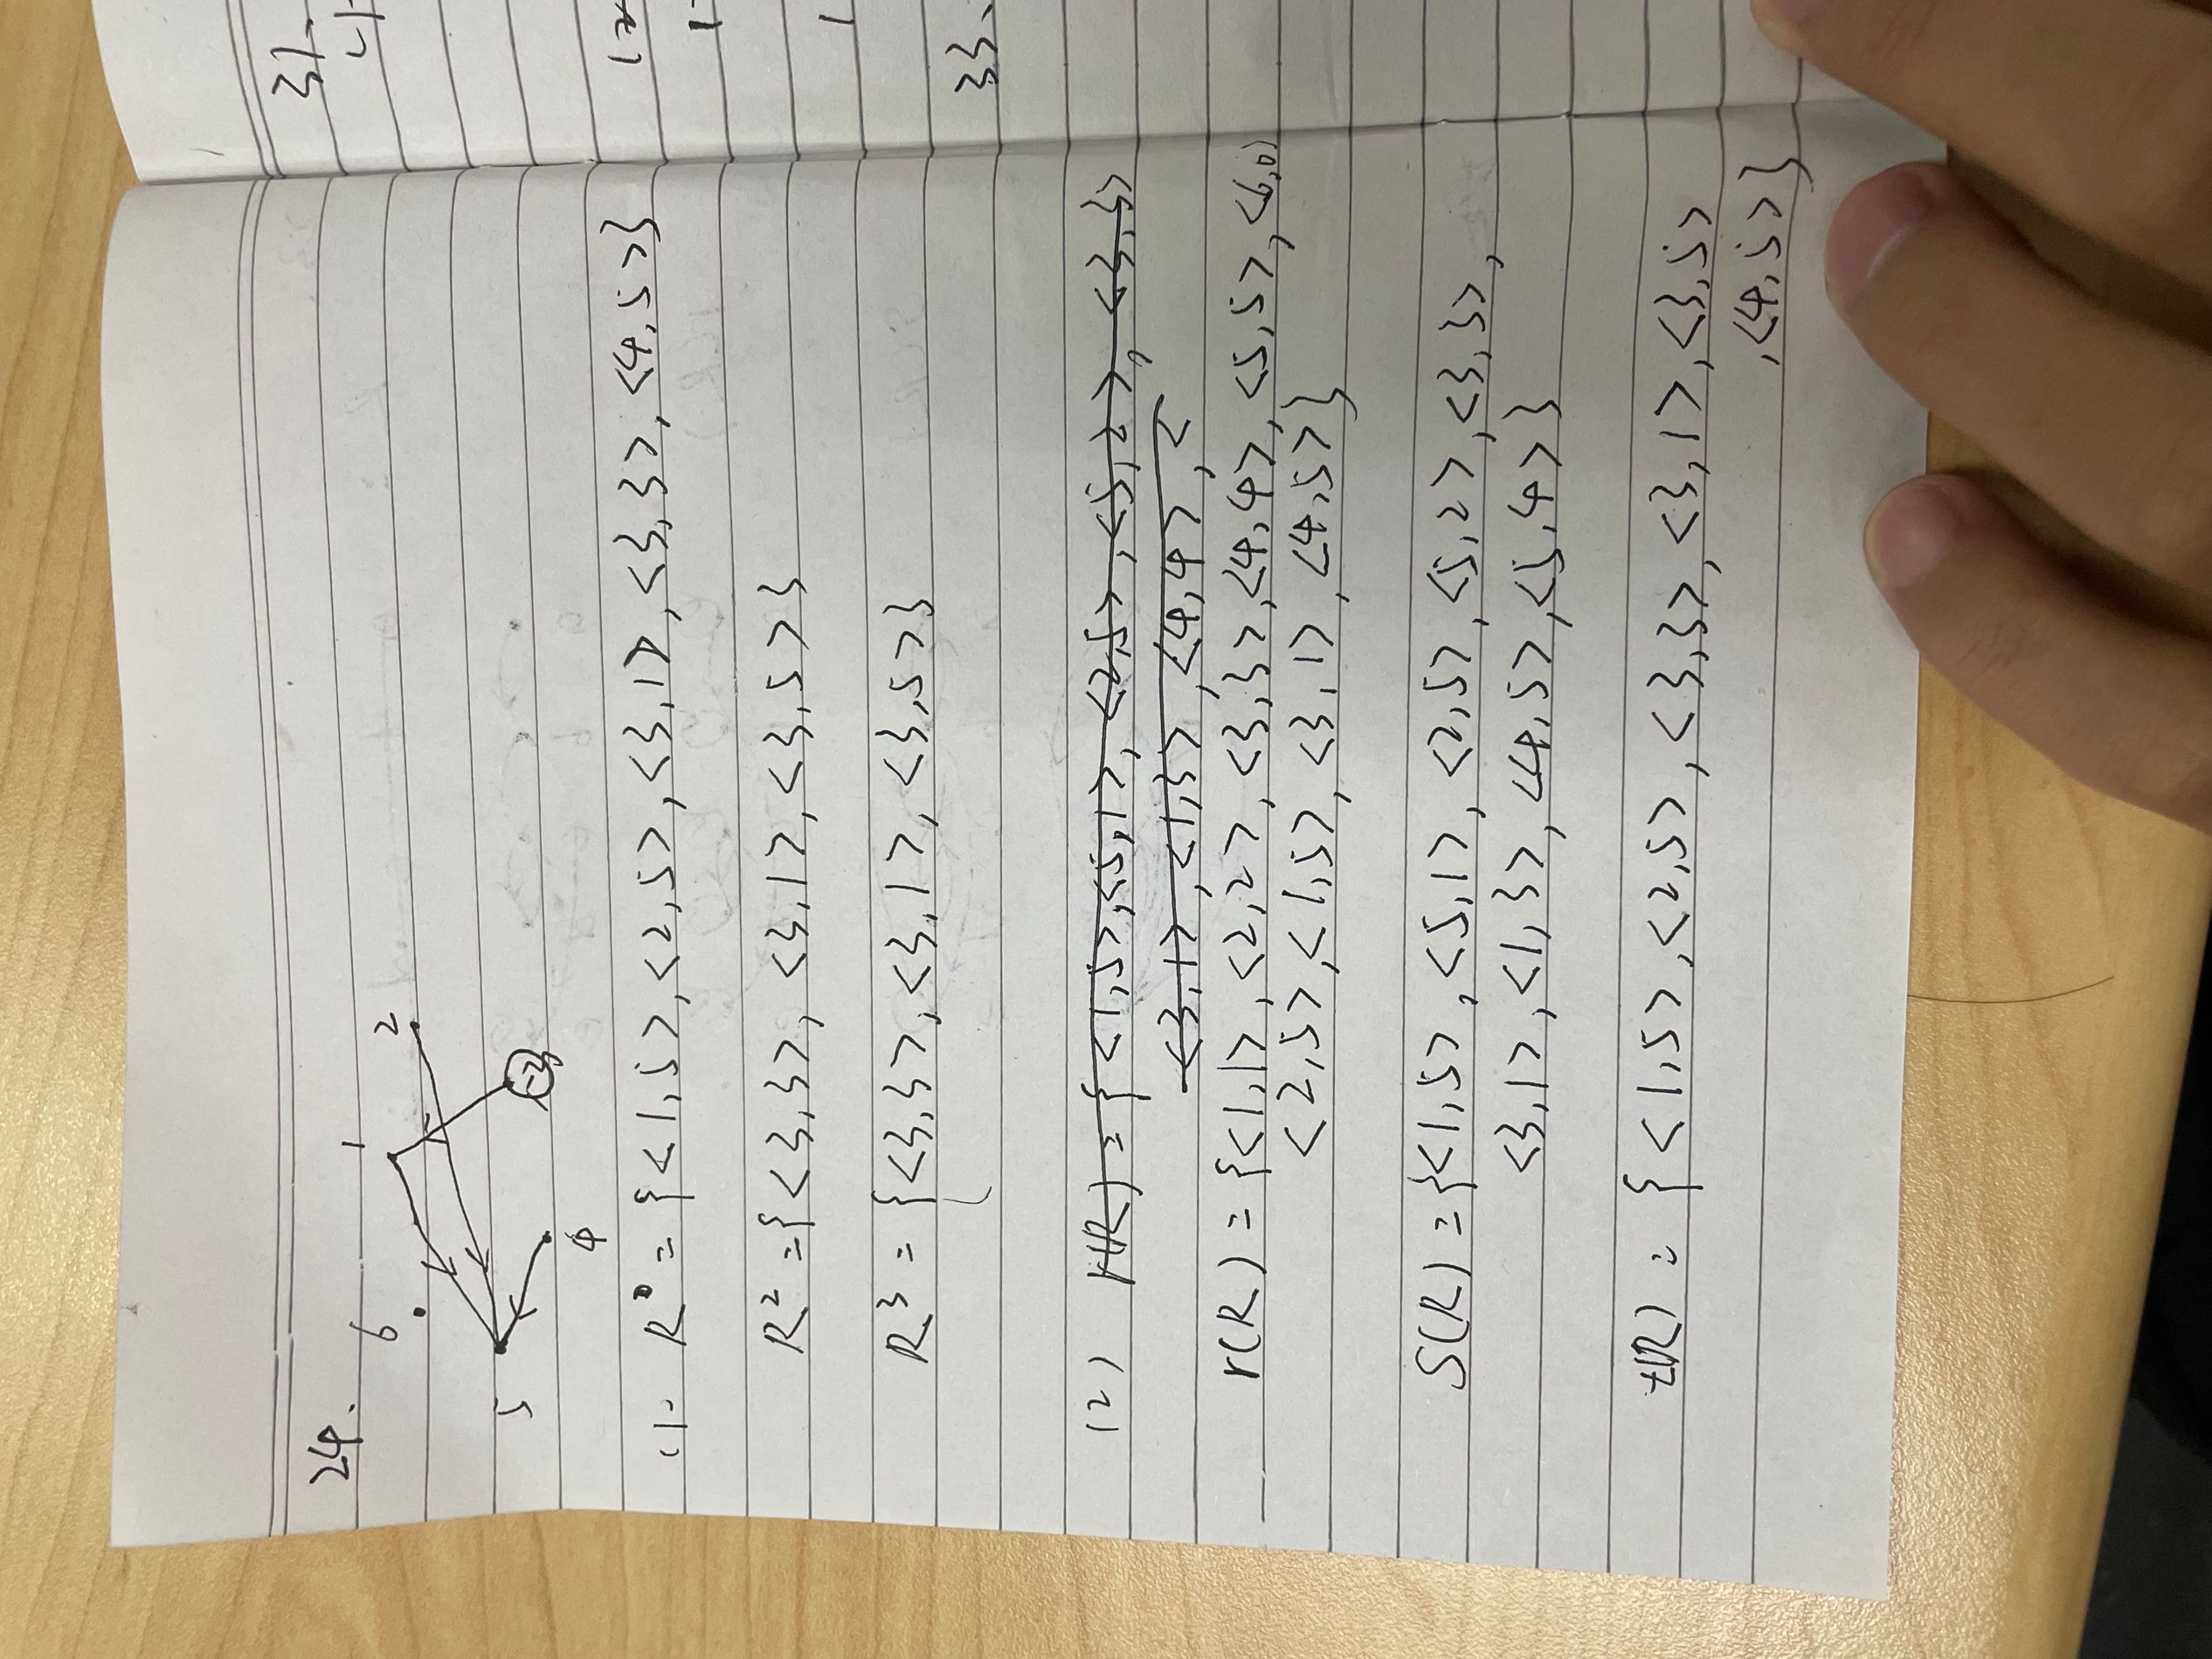 24.
6
1
2
5
3
4
(1). R = {<1,5>,<2,5>,<3,1>,<3,3>,<4,5>}
R² = {<3,3>, <3,1>, <3,5>}
R³ = {<3,3>,<3,1>,<3,5>}
(2) r(R) = {<1,5>,<5,1>,<2,5>,<5,2>, <3,3>
<3,1>,<1,3>,<4,4>,<
r(R) = {<1,1>,<2,2>,<3,3>,<4,4>,<5,5>,<6,6>
<2,5>,<1,5>,<3,1>,<4,5>}
S(R) = {<1,5>,<5,1>,<2,5>,<5,2>,<3,3>,
<3,1>,<1,3>,<4,5>,<5,4>}
t(R) = {<1,5>,<2,5>,<3,3>,<3,1>,<3,5>
,<4,5>}
31.
33.